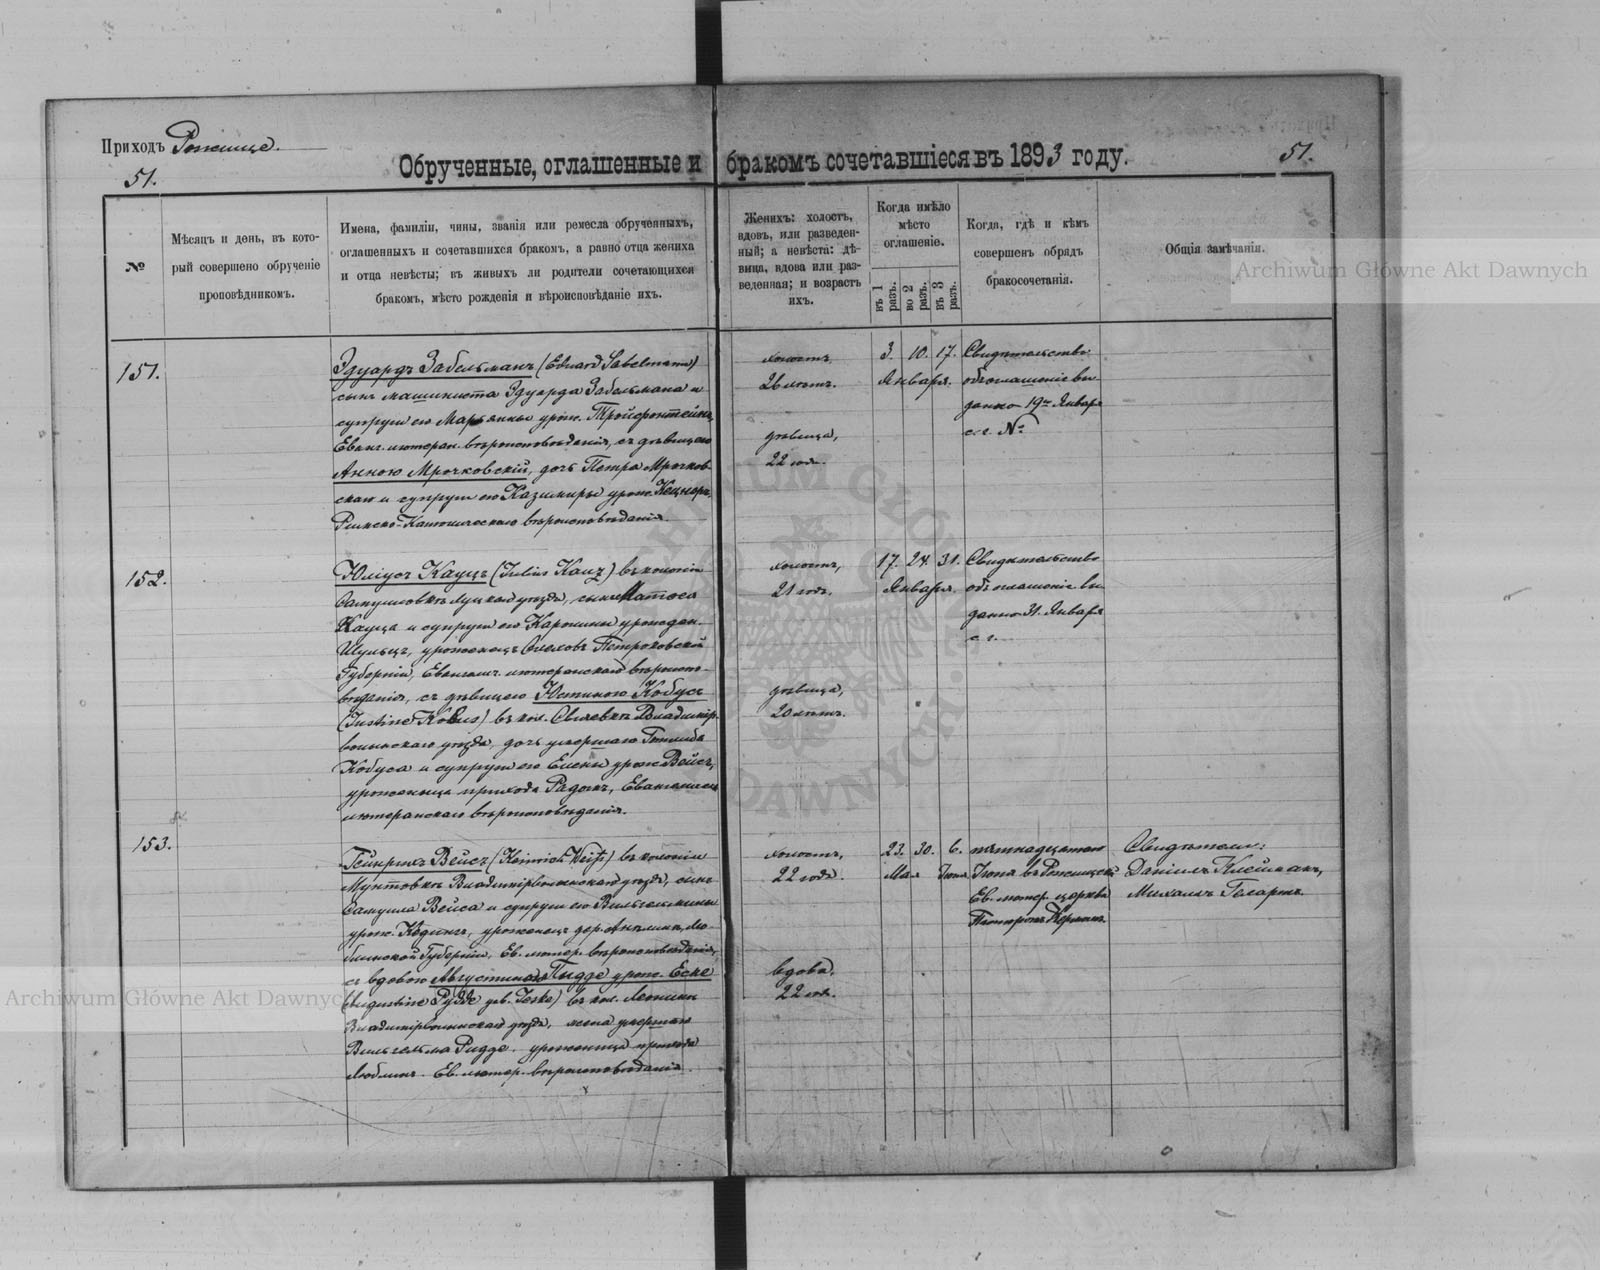 Приходъ Рожище.
51.
Обрученные, оглашенные и бракомъ сочетавшіеся въ 1893 году.
51.
№
Мѣсяцъ и день, въ кото-
рый совершено обрученіе
проповѣдникомъ.
Имена, фамиліи, чины, званія или ремесла обрученныхъ,
оглашенныхъ и сочетавшихся бракомъ, а равно отца жениха
и отца невѣсты; въ живыхъ ли родители сочетающихся
бракомъ, мѣсто рожденія и вѣроисповѣданіе ихъ.
Женихъ: холостъ,
вдовъ, или разведен-
ный; а невѣста: дѣ-
вица, вдова или раз-
веденная; и возрастъ
ихъ.
Когда имѣло
мѣсто
оглашеніе.
въ 1 разъ.
во 2 разъ.
въ 3 разъ.
Когда, гдѣ и кѣмъ
совершенъ обрядъ
бракосочетанія.
Общія замѣчанія.
Archiwum Główne Akt Dawnych
151.
Эдуардъ Забельманъ (Eduard Sabelmann)
сынъ машиниста Эдуарда Забельмана и
супруги его Марьянны урож.
Еванг. лютеран. вѣроисповѣданія, съ дѣвицею
Анною Мрочковскій, дочь Петра Мрочков-
скаго и супруги его Казимиры урож.
Римско-Католическаго вѣроисповѣданія.
холостъ,
26 лѣтъ.
дѣвица,
22 года.
3. 10. 17.
Января.
Свидѣтельство
объ оглашеніи вы-
дано 19го Января
с. г. №
152.
Юліусъ Кауцъ (Julius Kauz) въ колоніи
Луцкаго уѣзда, сынъ
Кауца и супруги его Каролины урожден.
Шульцъ, уроженецъ Петроковской
Губерніи, Евангелич. лютеранскаго вѣроиспо-
вѣданія, съ дѣвицею Юстиною Кобусъ
(Justine Kobus) въ кол. Владимір-
волынскаго уѣзда, дочь умершаго Готлиба
Кобуса и супруги его Елены урож. Вейсъ,
уроженица прихода Радомъ, Евангелическо
лютеранскаго вѣроисповѣданія.
холостъ,
21 годъ.
дѣвица,
20 лѣтъ.
17. 24. 31.
Января.
Свидѣтельство
объ оглашеніи вы-
дано 31. Января
с. г.
153.
Гейнрихъ Вейсъ (Heinrich Weiß) въ колоніи
Владимірволынскаго уѣзда, сынъ
Самуила Вейса и супруги его Вильгельмины
урож. уроженецъ дер. Лю-
блинской Губерніи, Ев. лютер. вѣроисповѣданія,
съ вдовою Августиною Рудде урож. Еске
(Augustine Rydde geb. Jeske) въ кол.
Владимірволынскаго уѣзда, жена умершаго
Вильгельма Ридде. уроженица прихода
Люблинъ. Ев. лютер. вѣроисповѣданія.
холостъ,
22 года.
вдова,
22 года.
23. 30. 6.
Мая Іюня
пятнадцатаго
Іюня въ Рожищской
Ев. лютер. церкви
Пасторомъ Керномъ.
Свидѣтели:
Даніилъ Клейманъ,
Михаилъ
Archiwum Główne Akt Dawnych
ARCHIWUM GŁÓWNE AKT DAWNYCH